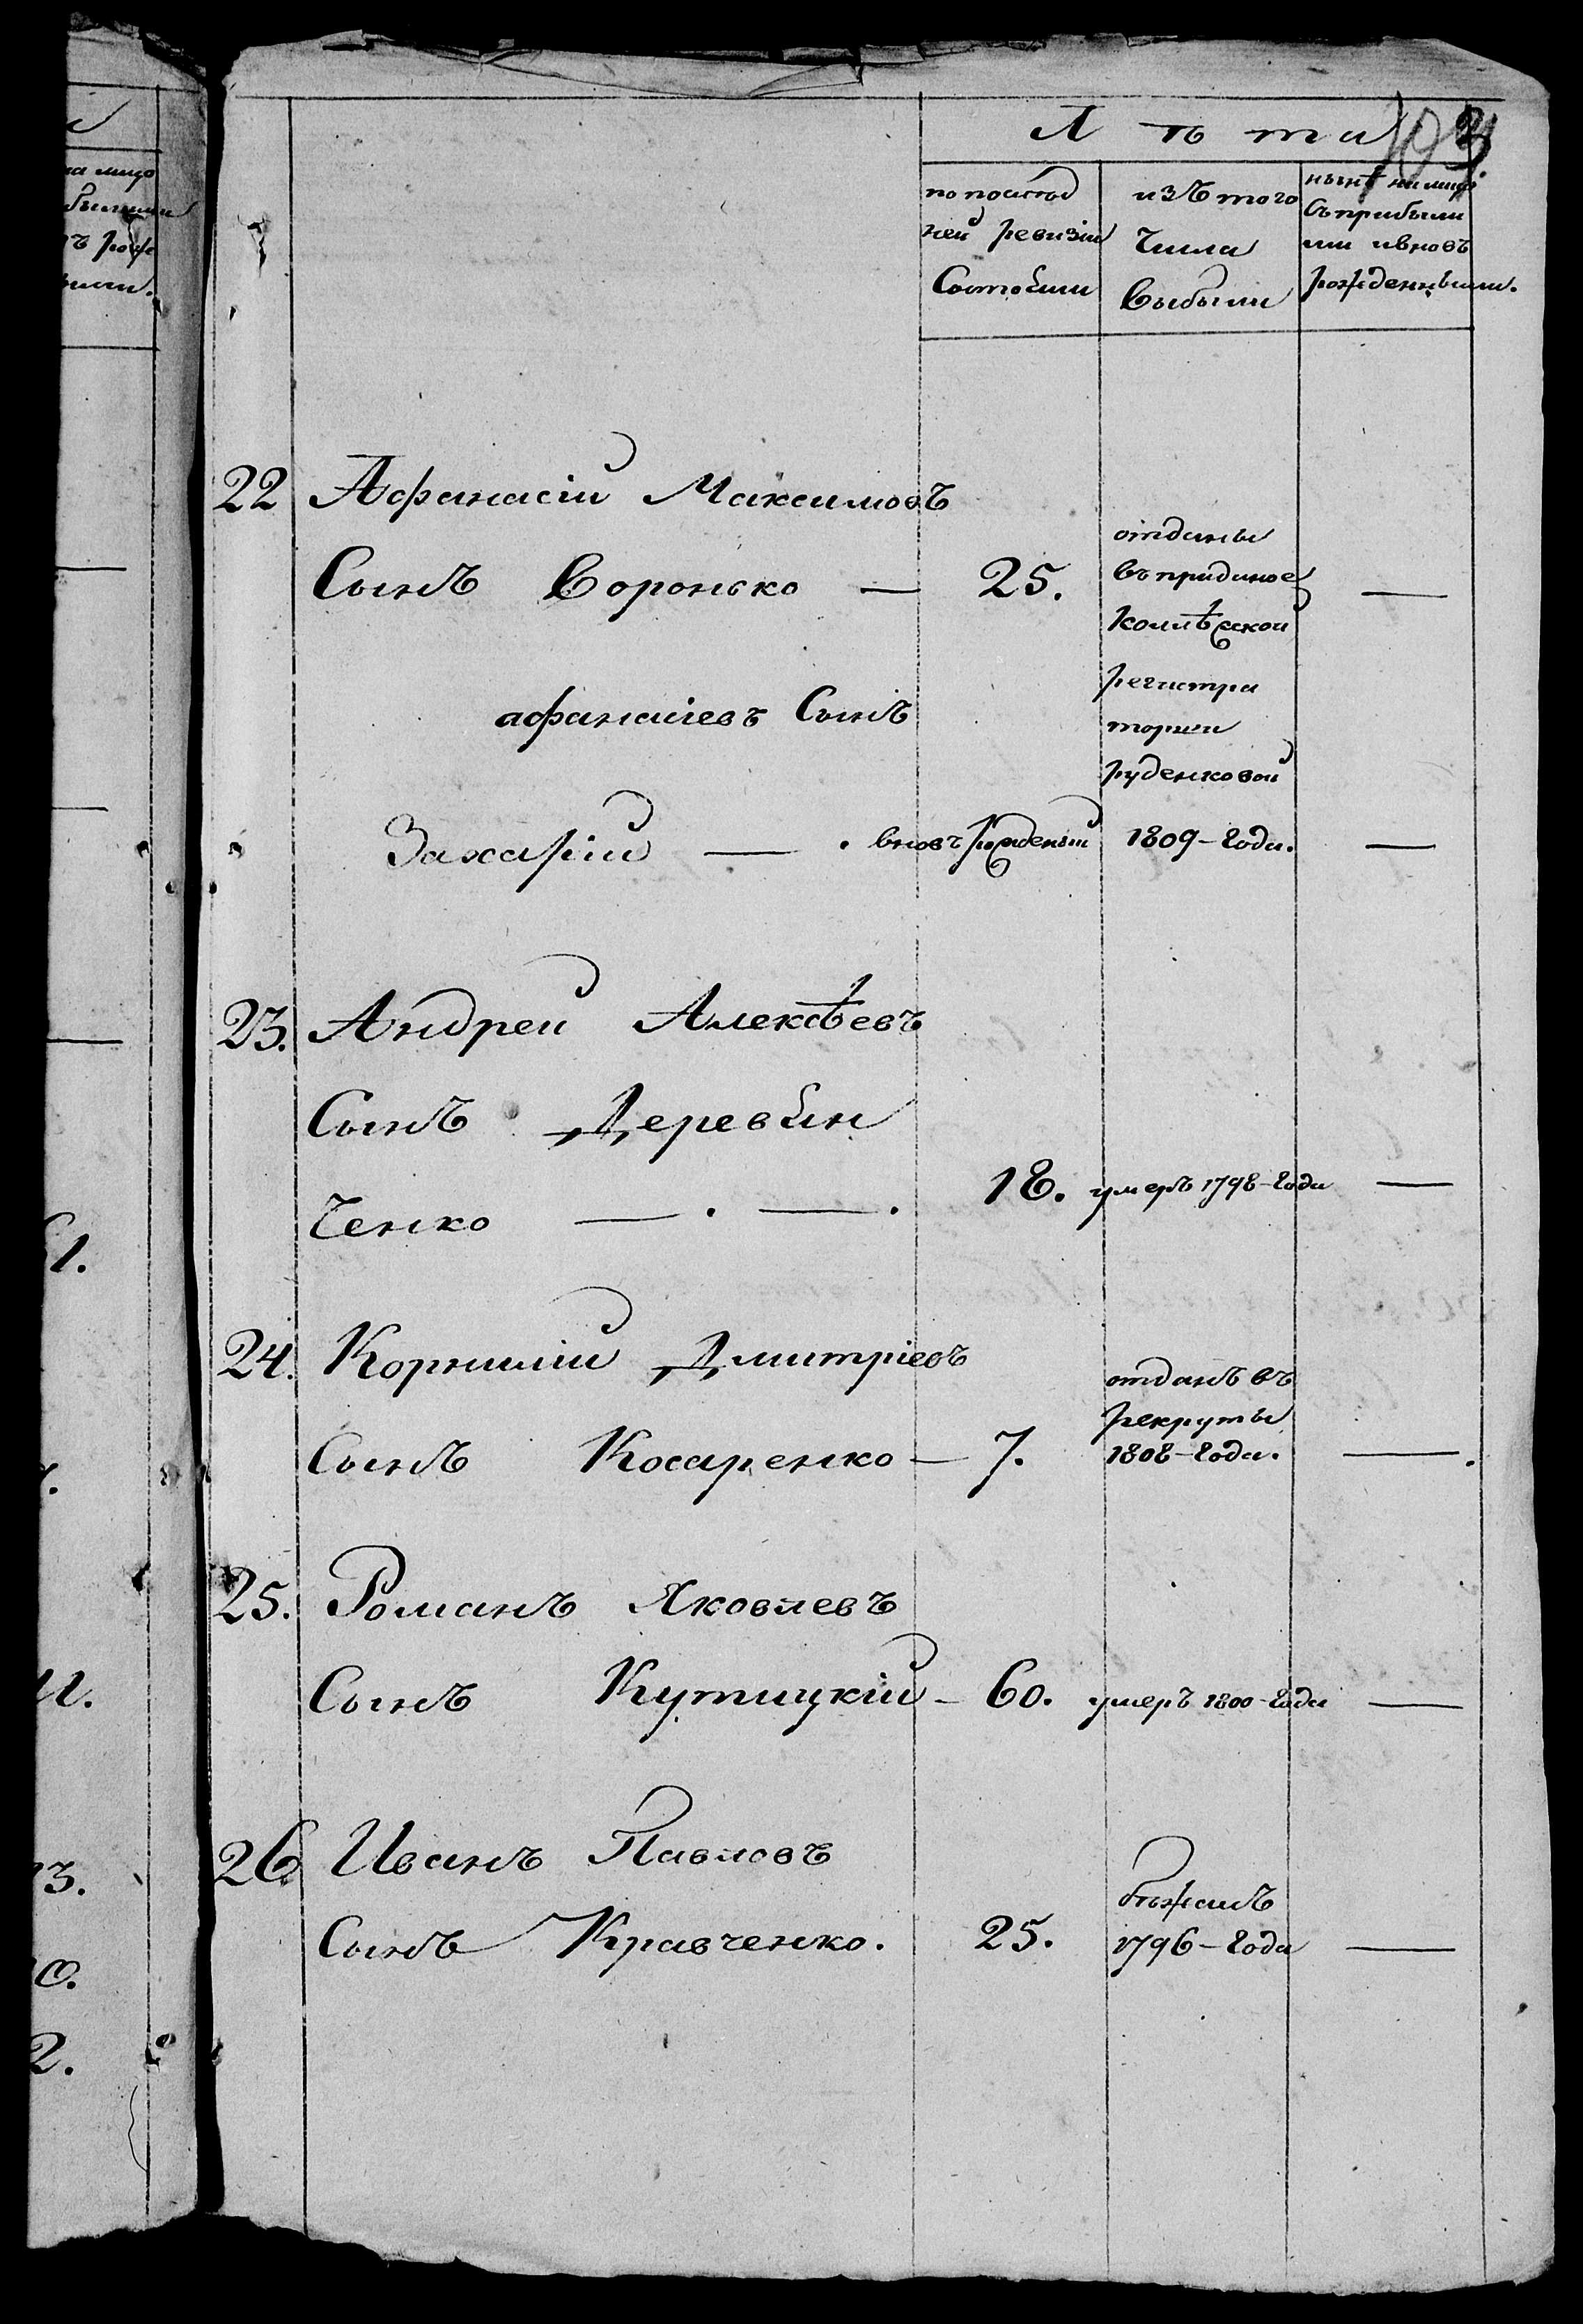 Лѣта
103
по послѣд
ней ревизіи
Состояли
изъ того
Числа
Выбыли
нынѣ на лицо
съ прибылы
ми и вновь
рожденными.
на лицо
ъ рож
22 Афанасій Максимовъ
Сынъ Воронько — 25. —
отданы
въ приданое
Колѣжской
регистра
торши
Руденковой
афанасіевъ Сынъ
Захарій — . вновь рожденый 1809-года. —
23. Андрей Алексѣевъ
Сынъ Деревян
Ченко — . — . 18. умеръ 1798-года —
24. Корнилій Дмитріевъ
Сынъ Косаренко — 7. —.
отданъ въ
рекруты
1808-года.
25. Романъ Яковлевъ
Сынъ Кутицкій - 60. умеръ 1800-года —
26. Иванъ Павловъ
Сынъ Кравченко. 25. —
бѣжалъ
1796-года